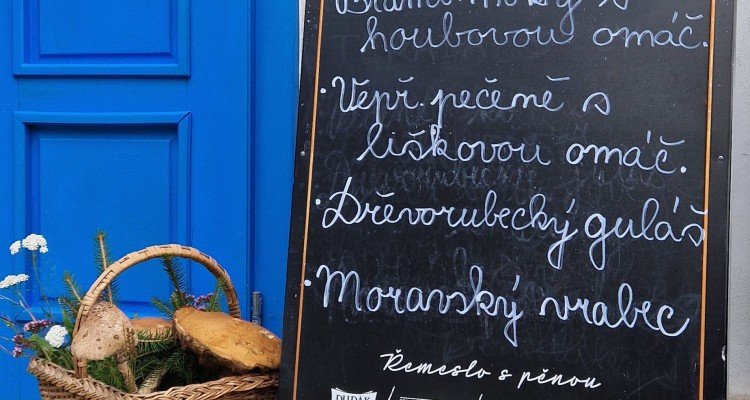 houbovou omáč.
· Vepř. pečeně s
liškovou omáč.
· Dřevorubecký guláš
· Moravský vrabec
Řemeslo s pěnou
DUDÁK